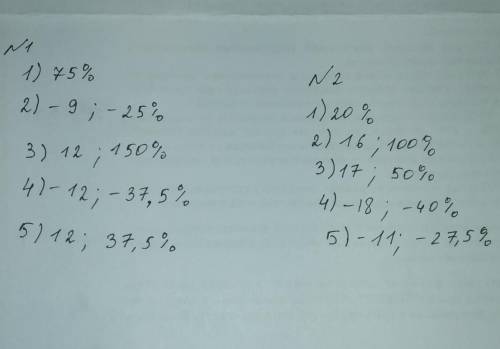 №1
1) 75%
2) - 9 ; - 25%
3) 12 ; 150%
4) - 12 ; - 37,5%
5) 12 ; 37,5%
№2
1) 20%
2) 16 ; 100%
3) 17 ; 50%
4) -18 ; -40%
5) -11 ; -27,5%